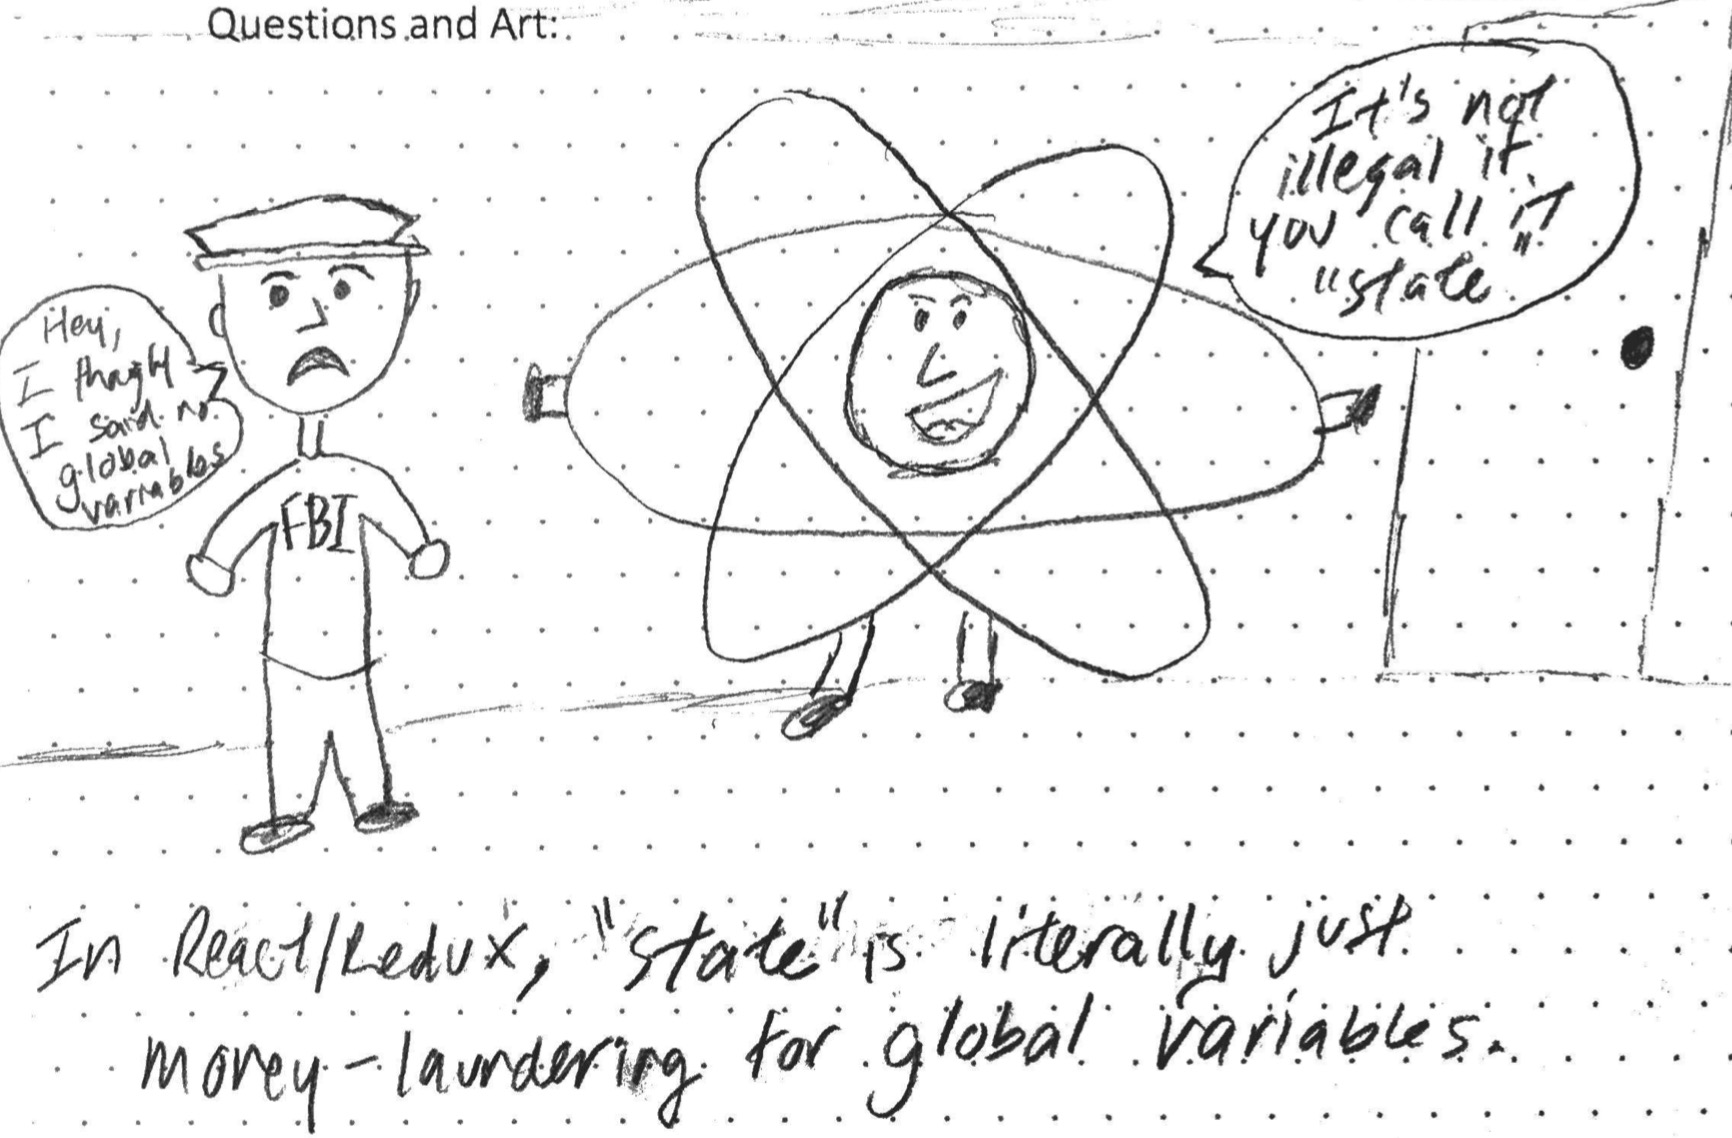 Questions and Art:
Hey,
I thought
I said no
global
variables
FBI
It's not
illegal if
you call it
"state"
In React/Redux, "state" is literally just
money-laundering for global variables.